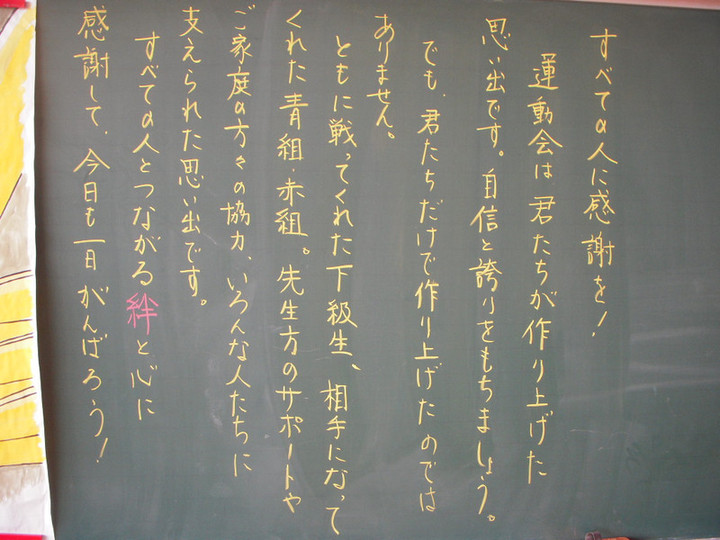 すべての人に感謝を!
運動会は君たちが作り上げた
思い出です。自信と誇りをもちましょう。
でも、君たちだけで作り上げたのでは
ありません。
ともに戦ってくれた下級生、相手になって
くれた青組・赤組。先生方のサポートや
ご家庭の方々の協力、いろんな人たちに
支えられた思い出です。
すべての人とつながる絆と心に
感謝して、今日も一日がんばろう!